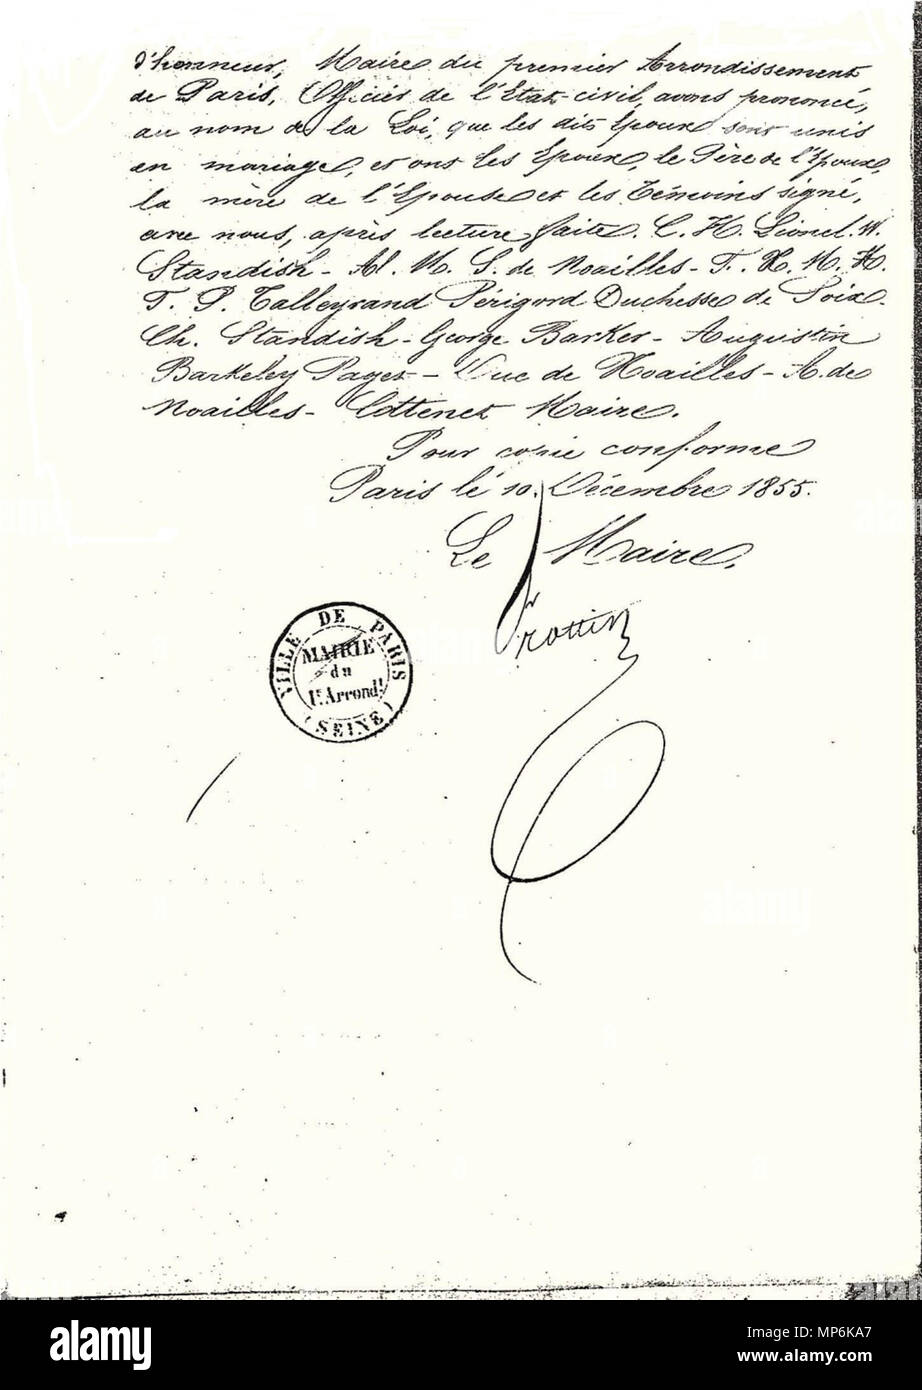 d'honneur, Maire du premier Arrondissement
de Paris, Officier de l'Etat-civil, avons prononcé,
au nom de la Loi, que les dits Epoux sont unis
en mariage, et ont les Epoux, le Père de l'Epoux,
la mère de l'Epouse et les Témoins signé,
avec nous, après lecture faite. C. H. Lionel. W.
Standish - Al. M. S. de Noailles - T. X. M. H.
T. P. Talleyrand Périgord Duchesse de Poix.
Ch. Standish - George Barker - Augustin
Barkeley Paget - Duc de Noailles - A. de
Noailles - Cottenet Maire.
Pour copie conforme
Paris le 10. Décembre 1855.
Le Maire,
Frottin
VILLE DE PARIS
MAIRIE
du
1r. Arrondt.
(SEINE)
alamy
alamy
Image ID: MP6KA7
www.alamy.com